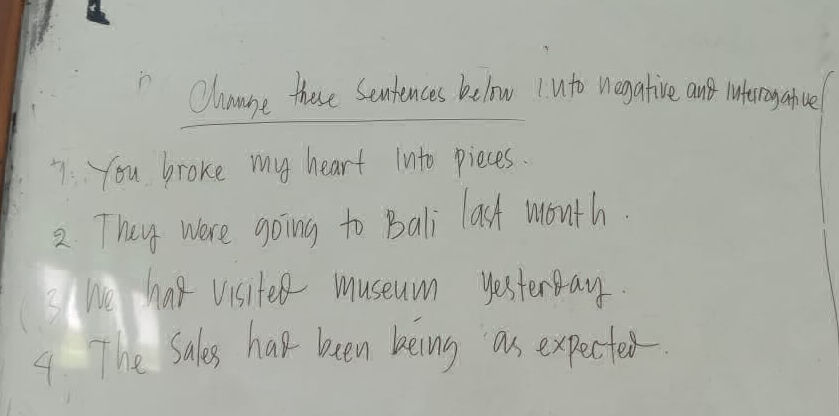 Change these Sentences below into negative and Interrogative
1. You broke my heart into pieces.
2. They were going to Bali last month.
3. We had visited museum yesterday.
4. The Sales had been being as expected.